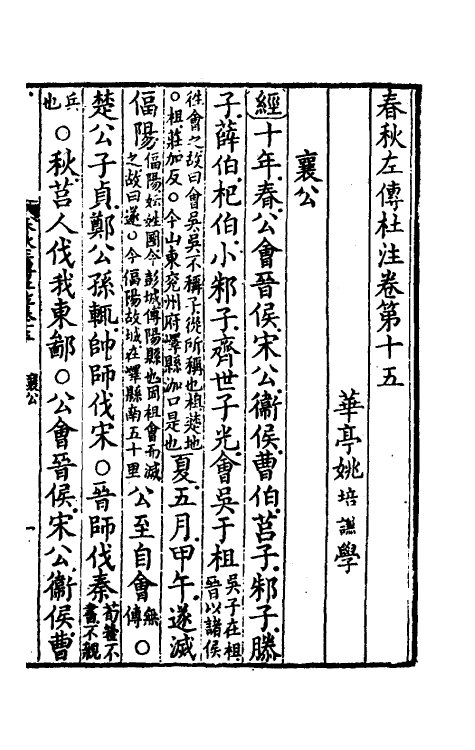 春秋左傳杜注卷第十五
華亭姚培謙學
襄公
經十年春公會晉侯宋公衞侯曹伯莒子邾子滕
子薛伯杞伯小邾子齊世子光會吳于柤吳子在柤晉以諸侯
往會之故曰會吳吳不稱子從所稱也柤楚地○柤莊加反○今山東兗州府嶧縣泇口是也夏五月甲午遂滅
偪陽偪陽妘姓國今彭城傅陽縣也因柤會而滅之故曰遂○今偪陽故城在嶧縣南五十里公至自會無傳○
楚公子貞鄭公孫輒帥師伐宋○晉師伐秦荀罃不書不親
兵也○秋莒人伐我東鄙○公會晉侯宋公衞侯曹
襄公
一